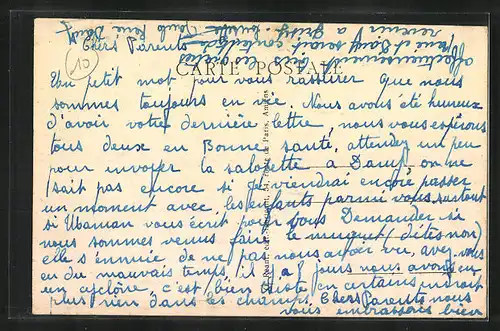 10
Chers Parents
CARTE POSTALE
Un petit mot pour vous rassurer que nous
sommes toujours en vie. Nous avons été heureux
d'avoir votre dernière lettre, nous vous espérons
tous deux en Bonne santé, attendez un peu
pour envoyer la salopette à Damp on ne
sait pas encore si je viendrai encore passer
un moment avec les enfants parmi vous, surtout
si Maman vous écrit pour vous Demander si
nous sommes venus faire le muguet (dites non)
elle s'ennuie de ne pas nous avoir vu, avez vous
eu du mauvais temps, il y a 8 jours nous avons eu
un cyclône, c'est bien triste en certains endroit
plus rien dans les champs. Chers Parents nous
vous embrassons bien
affectueusement
revenir à